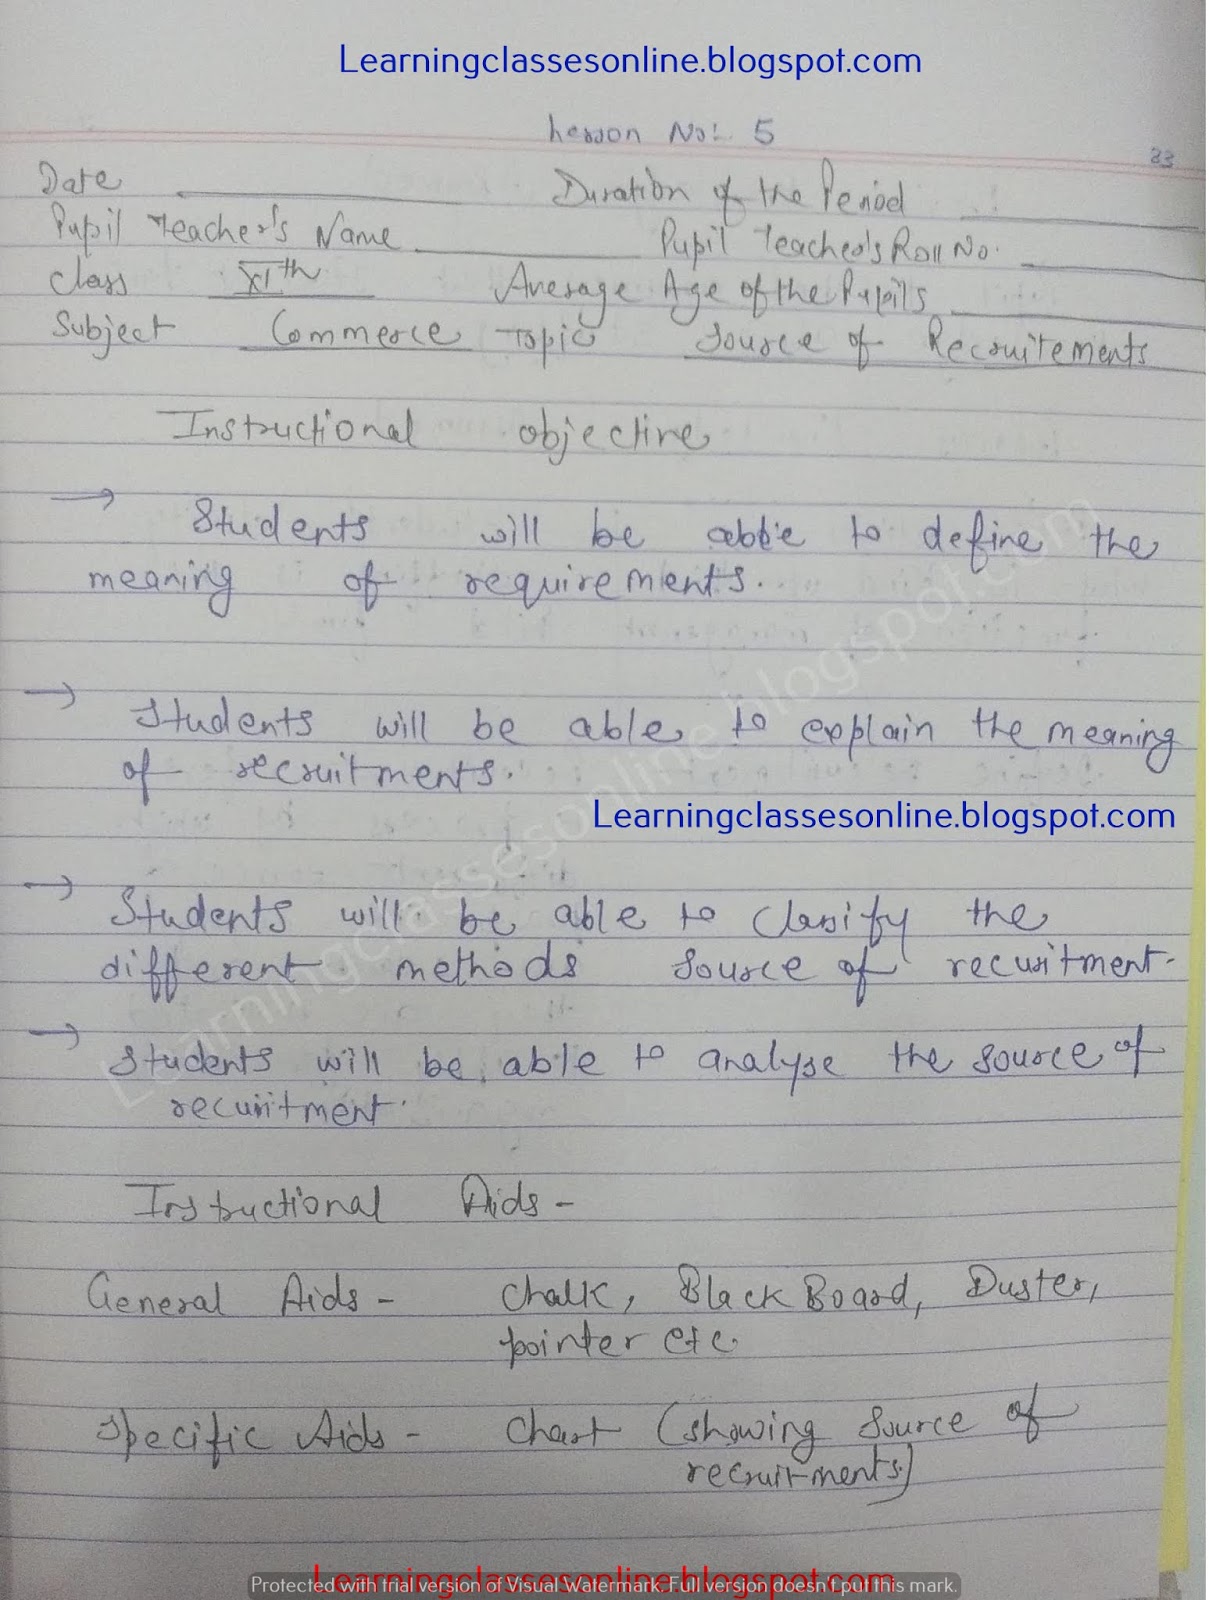 Learningclassesonline.blogspot.com
Lesson No:. 5
33
Date Duration of the Period
Pupil Teacher's Name Pupil Teacher's Roll No.
Class XIth Average Age of the Pupils
Subject Commerce Topic Source of Recruitements
Instructional objective
→ Students will be able to define the
meaning of requirements.
→ Students will be able to explain the meaning
of recruitments.
Learningclassesonline.blogspot.com
→ Students will be able to classify the
different methods source of recuitment.
→ Students will be able to analyse the source of
recuiitment.
Instructional Aids -
General Aids - Chalk, Black Board, Duster,
pointer etc.
Specific Aids - Chart (showing source of
recruitments)
Learningclassesonline.blogspot.com
Protected with trial version of Visual Watermark. Full version doesn't put this mark.